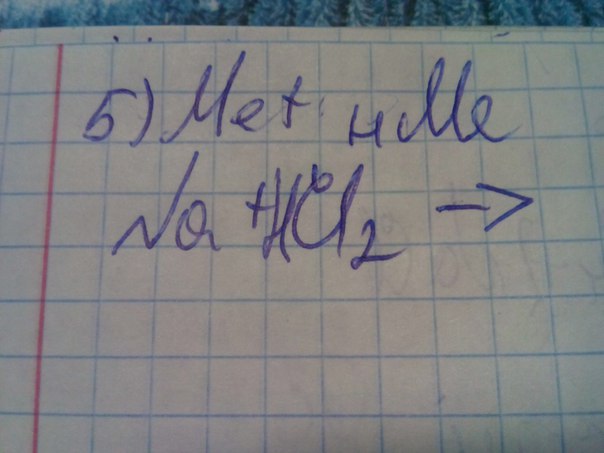 5) Me + нMe
Na + Cl₂ →